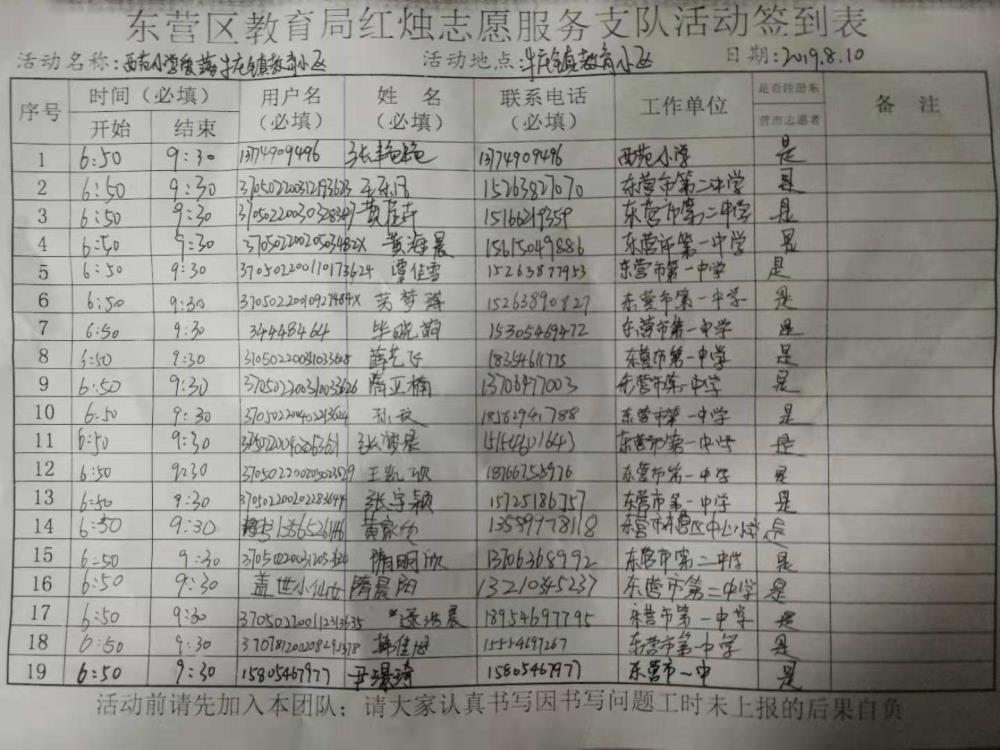 东营区教育局红烛志愿服务支队活动签到表
活动名称:西苑小学 牛庄镇教育小区 活动地点:牛庄镇教育小区 日期:2019.8.10
序号 时间(必填) 用户名(必填) 姓名(必填) 联系电话(必填) 工作单位 是否注册东营市志愿者 备注
开始 结束
1 6:50 9:30 13774909496 张艳艳 13774909496 西苑小学 是
2 6:50 9:30 15263827070 东营市第二中学 是
3 6:50 9:30 15166219359 东营市第二中学 是
4 6:50 9:30 37050220020503482X 黄海晨 15615049886 东营市第一中学 是
5 6:50 9:30 370502200110173624 覃佳雪 15263877953 东营市第一中学 是
6 6:50 9:30 37050220010927484X 梦 15263890827 东营市第一中学 是
7 6:50 9:30 34448464 毕晓萌 15305469472 东营市第一中学 是
8 6:50 9:30 薛艺飞 18354611775 东营市第一中学 是
9 6:50 9:30 370502200310033626 亚楠 13706477003 东营市第一中学 是
10 6:50 9:30 370502200402123624 孙 18562941788 东营市第一中学 是
11 6:50 9:30 张 晨 东营市第一中学 是
12 6:50 9:30 王凯欣 18766758976 东营市第一中学 是
13 6:50 9:30 张宇颖 15725186757 东营市第一中学 是
14 6:50 9:30 黄家 13559778118 东营市东营区 是
15 6:50 9:30 隋明欣 13706368992 东营市第二中学 是
16 6:50 9:30 盖世小仙女 隋晨阳 13210345237 东营市第二中学 是
17 6:50 9:30 370502200112313635 晨 18954697795 东营市第一中学 是
18 6:50 9:30 韩佳 15554697267 东营市第一中学 是
19 6:50 9:30 15805467977 尹 琦 15805467977 东营市一中 是
活动前请先加入本团队;请大家认真书写因书写问题工时未上报的后果自负